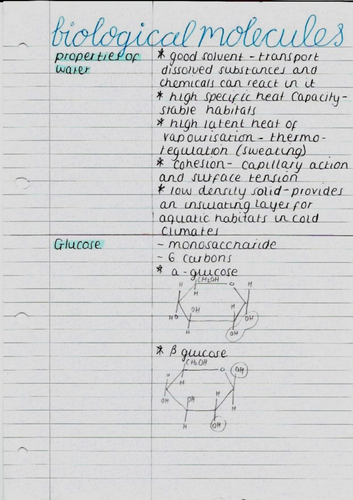 biological molecules
properties of
water
* good solvent - transport
dissolved substances and
chemicals can react in it
* high specific heat capacity -
stable habitats
* high latent heat of
vapourisation - thermo-
regulation (sweating)
* cohesion - capillary action
and surface tension
* low density solid - provides
an insulating layer for
aquatic habitats in cold
climates
Glucose
- monosaccharide
- 6 carbons
* α - glucose
CH₂OH
H O H
H
H OH H
HO OH
H OH
* β glucose
CH₂OH
H O OH
H
OH H
OH H
H OH